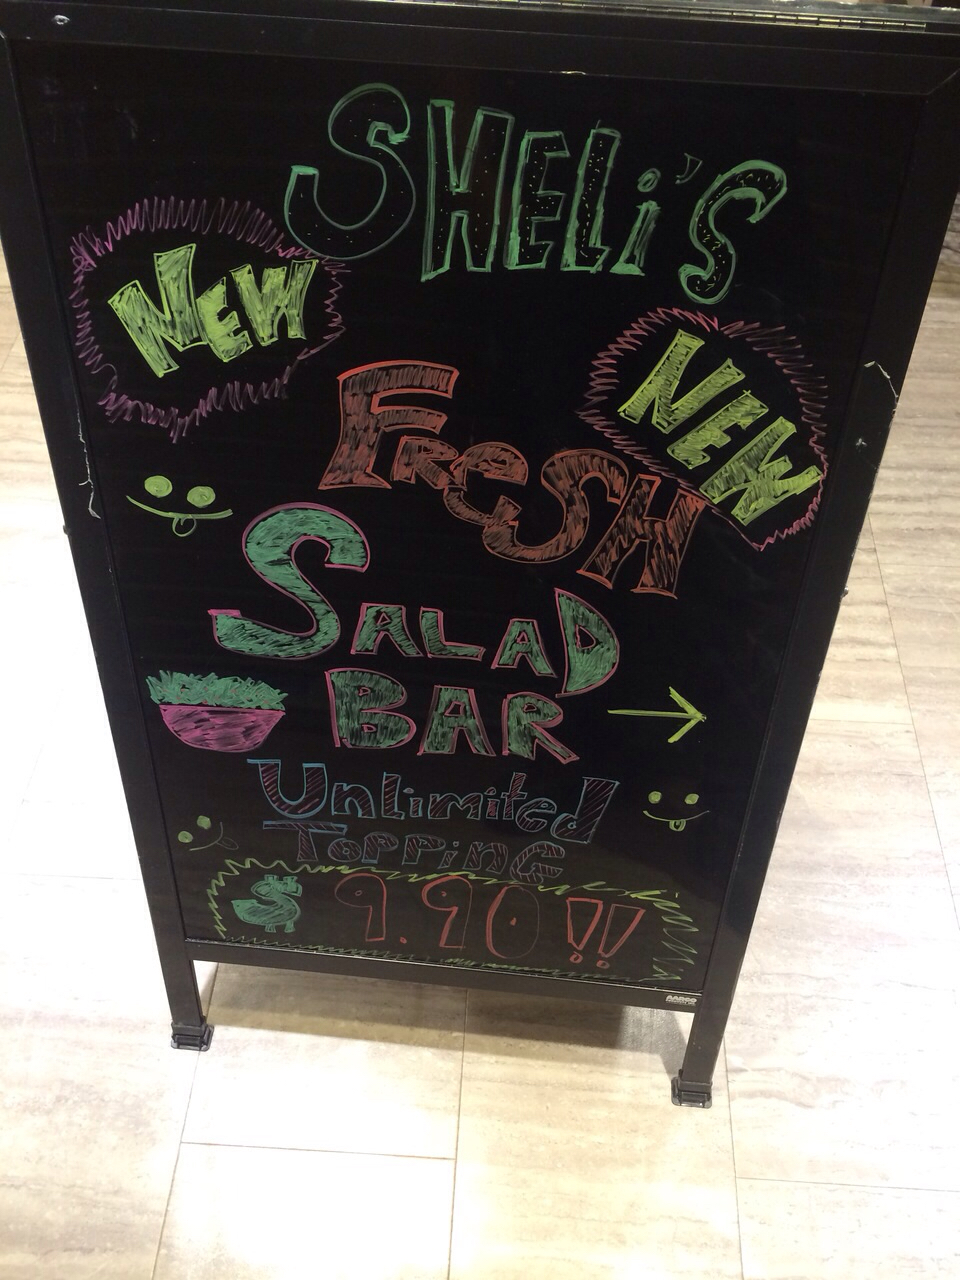 SHELi'S
NEW
NEW
FResH
SALAD
BAR
Unlimited
Topping
$ 9.90!!
AARCO